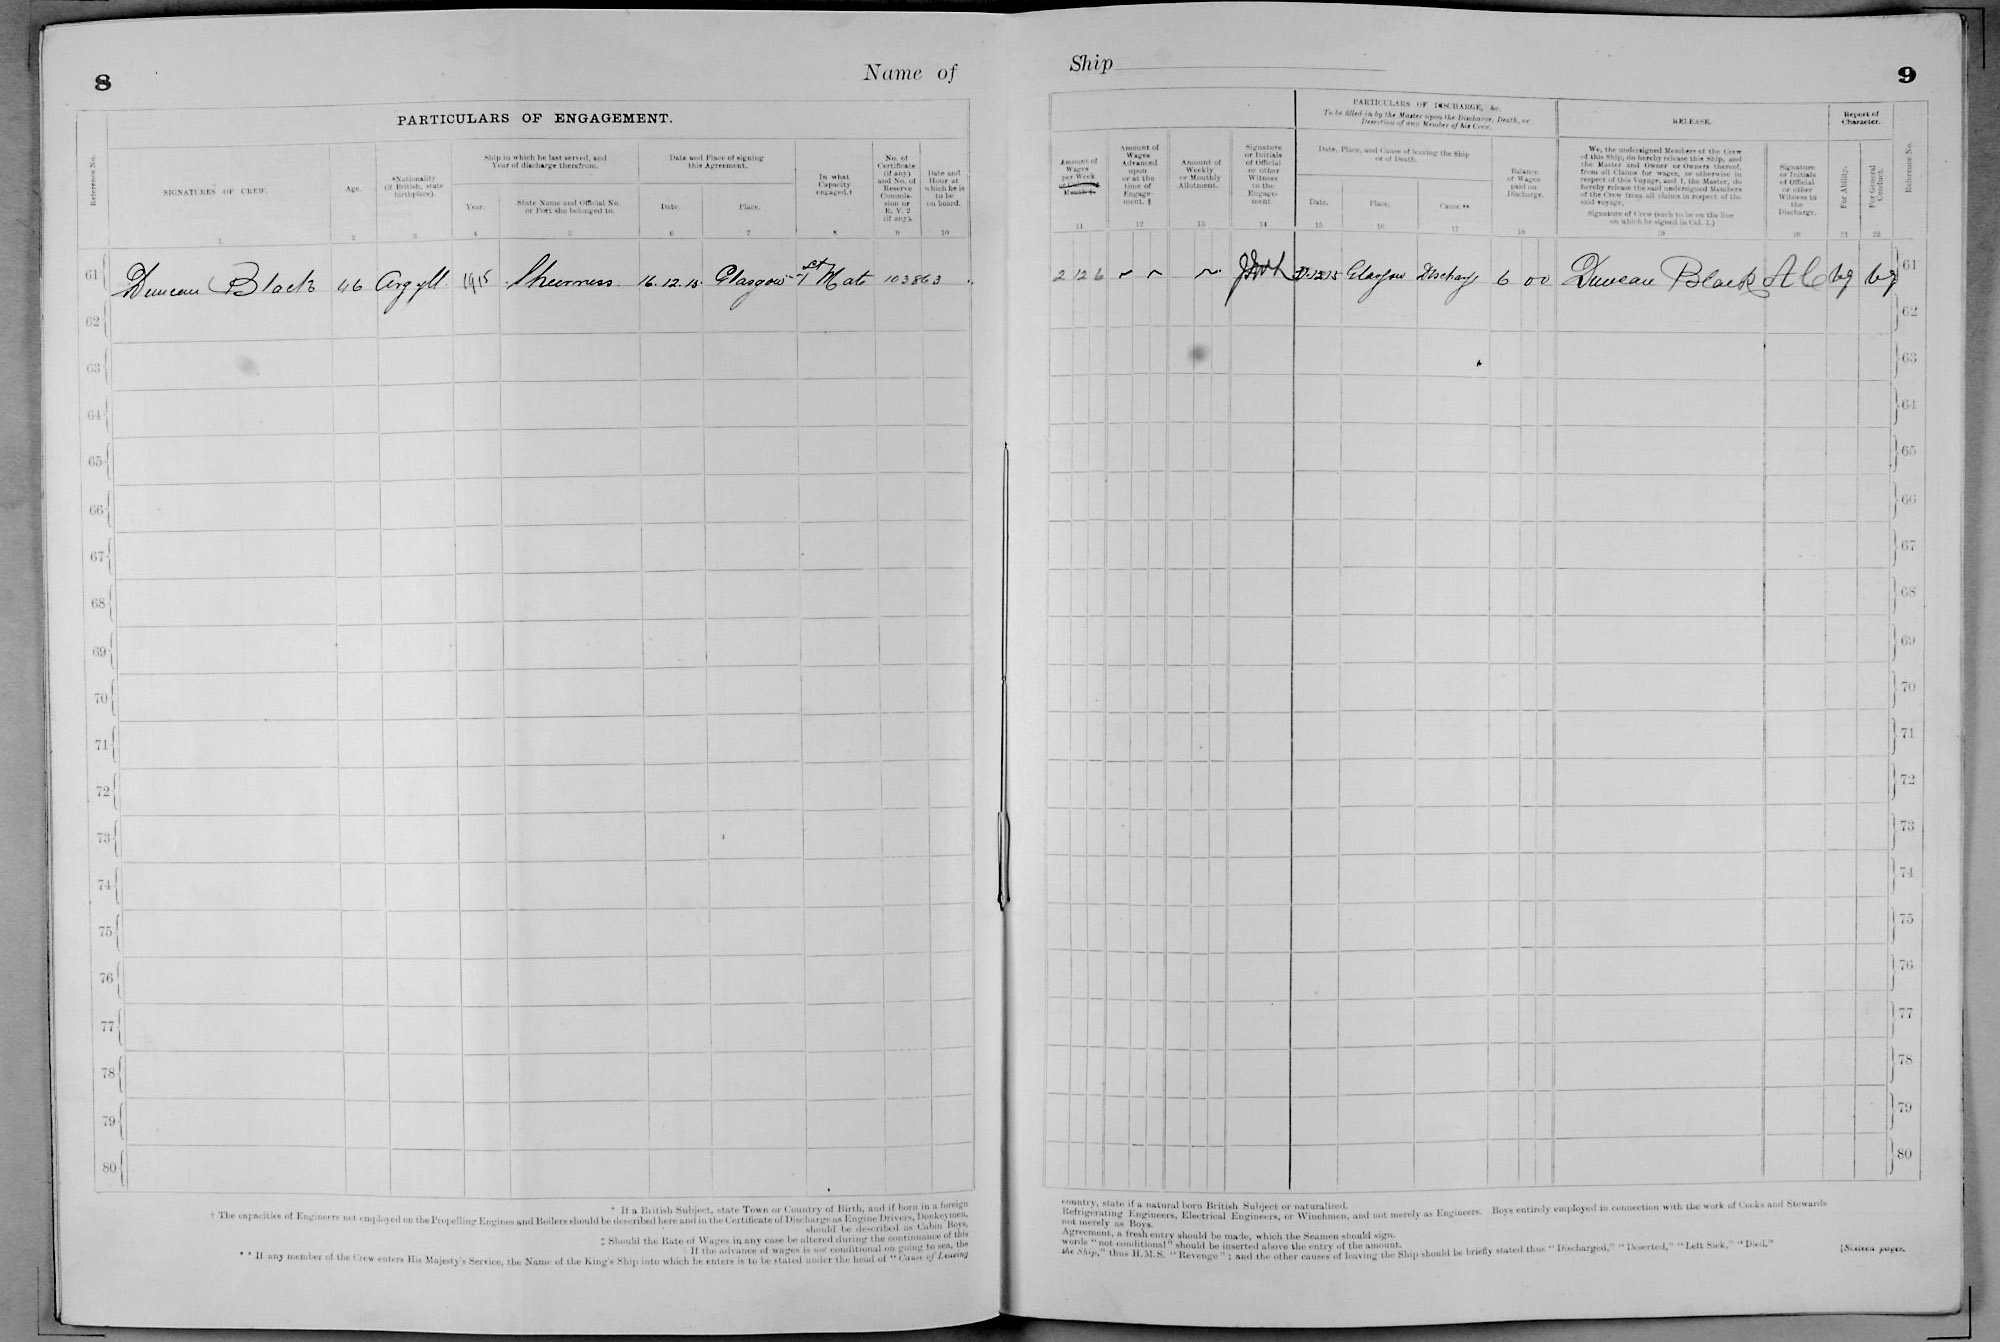 8
Name of
PARTICULARS OF ENGAGEMENT.
Reference No.
SIGNATURES OF CREW.
Age.
*Nationality
(if British, state
birthplace).
Ship in which he last served, and
Year of discharge therefrom.
Year.
State Name and Official No.
or Port she belonged to.
Date and Place of signing
this Agreement.
Date.
Place.
In what
Capacity
engaged.†
No. of
Certificate
(if any)
and No. of
Reserve
Commis-
sion or
R. V. 2
(if any).
Date and
Hour at
which he is
to be
on board.
1 2 3 4 5 6 7 8 9 10
61 Duncan Black 46 Argyll 1915 Sheerness 16.12.15 Glasgow 1st Mate 103863
62
63
64
65
66
67
68
69
70
71
72
73
74
75
76
77
78
79
80
* If a British Subject, state Town or Country of Birth, and if born in a foreign
† The capacities of Engineers not employed on the Propelling Engines and Boilers should be described here and in the Certificate of Discharge as Engine Drivers, Donkeymen,
should be described as Cabin Boys,
‡ Should the Rate of Wages in any case be altered during the continuance of this
If the advance of wages is not conditional on going to sea, the
** If any member of the Crew enters His Majesty's Service, the Name of the King's Ship into which he enters is to be stated under the head of "Cause of Leaving
Ship
9
Amount of
Wages
per Week
Month ‡.
Amount of
Wages
Advanced
upon
or at the
time of
Engage-
ment. §
Amount of
Weekly
or Monthly
Allotment.
Signature
or Initials
of Official
or other
Witness
to the
Engage-
ment
PARTICULARS OF DISCHARGE, &c.
To be filled in by the Master upon the Discharge, Death, or
Desertion of any Member of his Crew.
Date, Place, and Cause of leaving the Ship
or of Death.
Date.
Place.
Cause.**
Balance
of Wages
paid on
Discharge.
RELEASE.
We, the undersigned Members of the Crew
of this Ship, do hereby release this Ship, and
the Master and Owner or Owners thereof,
from all Claims for wages, or otherwise in
respect of this Voyage, and I, the Master, do
hereby release the said undersigned Members
of the Crew from all claims in respect of the
said voyage.
Signature of Crew (each to be on the line
on which he signed in Col. 1.)
Signature
or Initials
of Official
or other
Witness to
the
Discharge.
Report of
Character.
For Ability.
For General
Conduct.
Reference No.
11 12 13 14 15 16 17 18 19 20 21 22
2 12 6 Glasgow Discharge 6 00 Duncan Black A C Vg Vg 61
62
63
64
65
66
67
68
69
70
71
72
73
74
75
76
77
78
79
80
country, state if a natural born British Subject or naturalized.
Refrigerating Engineers, Electrical Engineers, or Winchmen, and not merely as Engineers. Boys entirely employed in connection with the work of Cooks and Stewards
not merely as Boys.
Agreement, a fresh entry should be made, which the Seamen should sign.
words "not conditional" should be inserted above the entry of the amount.
the Ship," thus H.M.S. "Revenge"; and the other causes of leaving the Ship should be briefly stated thus "Discharged," "Deserted," "Left Sick," "Died."
[Sixteen pages.